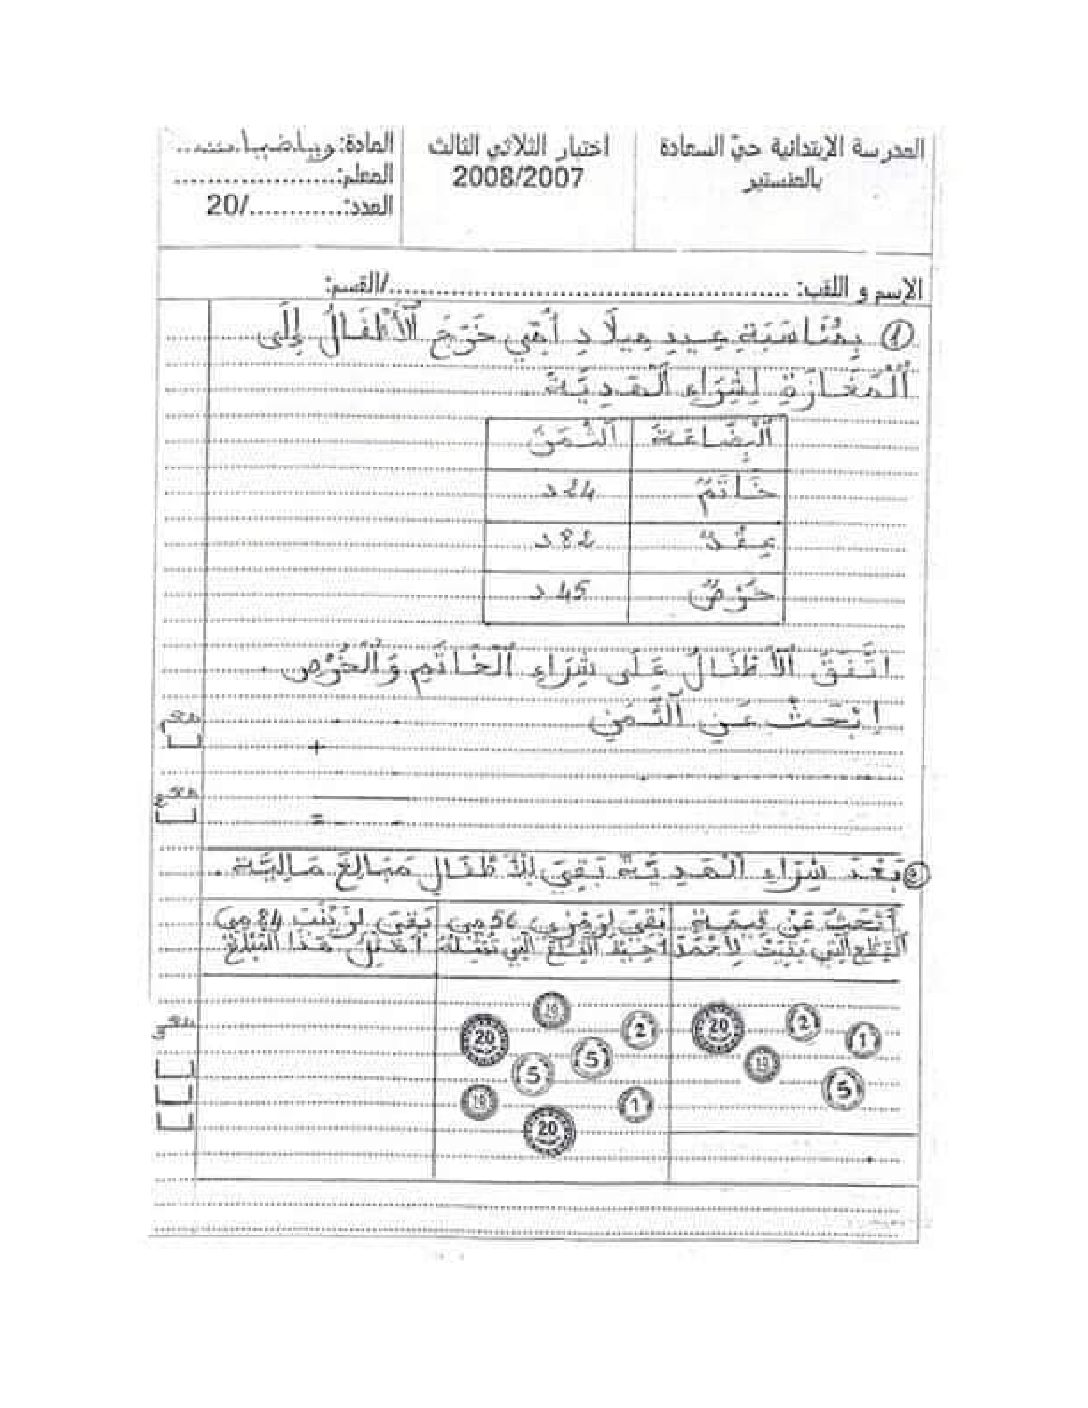 المدرسة الإبتدائية حيّ السعادة
بالمنستير
اختبار الثلاثي الثالث
2008/2007
المادة: رياضيات
المعلم:
العدد: ............/20
الإسم و اللقب: ............................................./القسم:
1 بِمُنَاسَبَةِ عِيدِ مِيلَادِ أُمِّي خَرَجَ الْأَطْفَالُ إِلَى
الْمَغَازَةِ لِشِرَاءِ الْهَدِيَّةِ
الْبِضَاعَةُ الثَّمَنُ
خَاتَمٌ 24 د
عِقْدٌ 82 د
خُرْصٌ 45 د
اتَّفَقَ الْأَطْفَالُ عَلَى شِرَاءِ الْخَاتَمِ وَالْخُرْصِ .
اِبْحَثْ عَنِ الثَّمَنِ
مع1
+
=
2 بَعْدَ شِرَاءِ الْهَدِيَّةِ بَقِيَ لِلْأَطْفَالِ مَبَالِغَ مَالِيَّة .
أَبْحَثُ عَنْ قِيمَةِ
الْقِطَعِ الَّتِي بَقِيَتْ لِأَحْمَدَ
بَقِيَ لِرَمْزِي 56 مي
أُحِيطُ الْقِطَعَ الَّتِي تُمَثِّلُهُ
بَقِيَ لِزَيْنَبَ 84 مي
أُمَثِّلُ هَذَا الْمَبْلَغَ
20 2 1 10 5
10 20 2 5 5 10 1 20